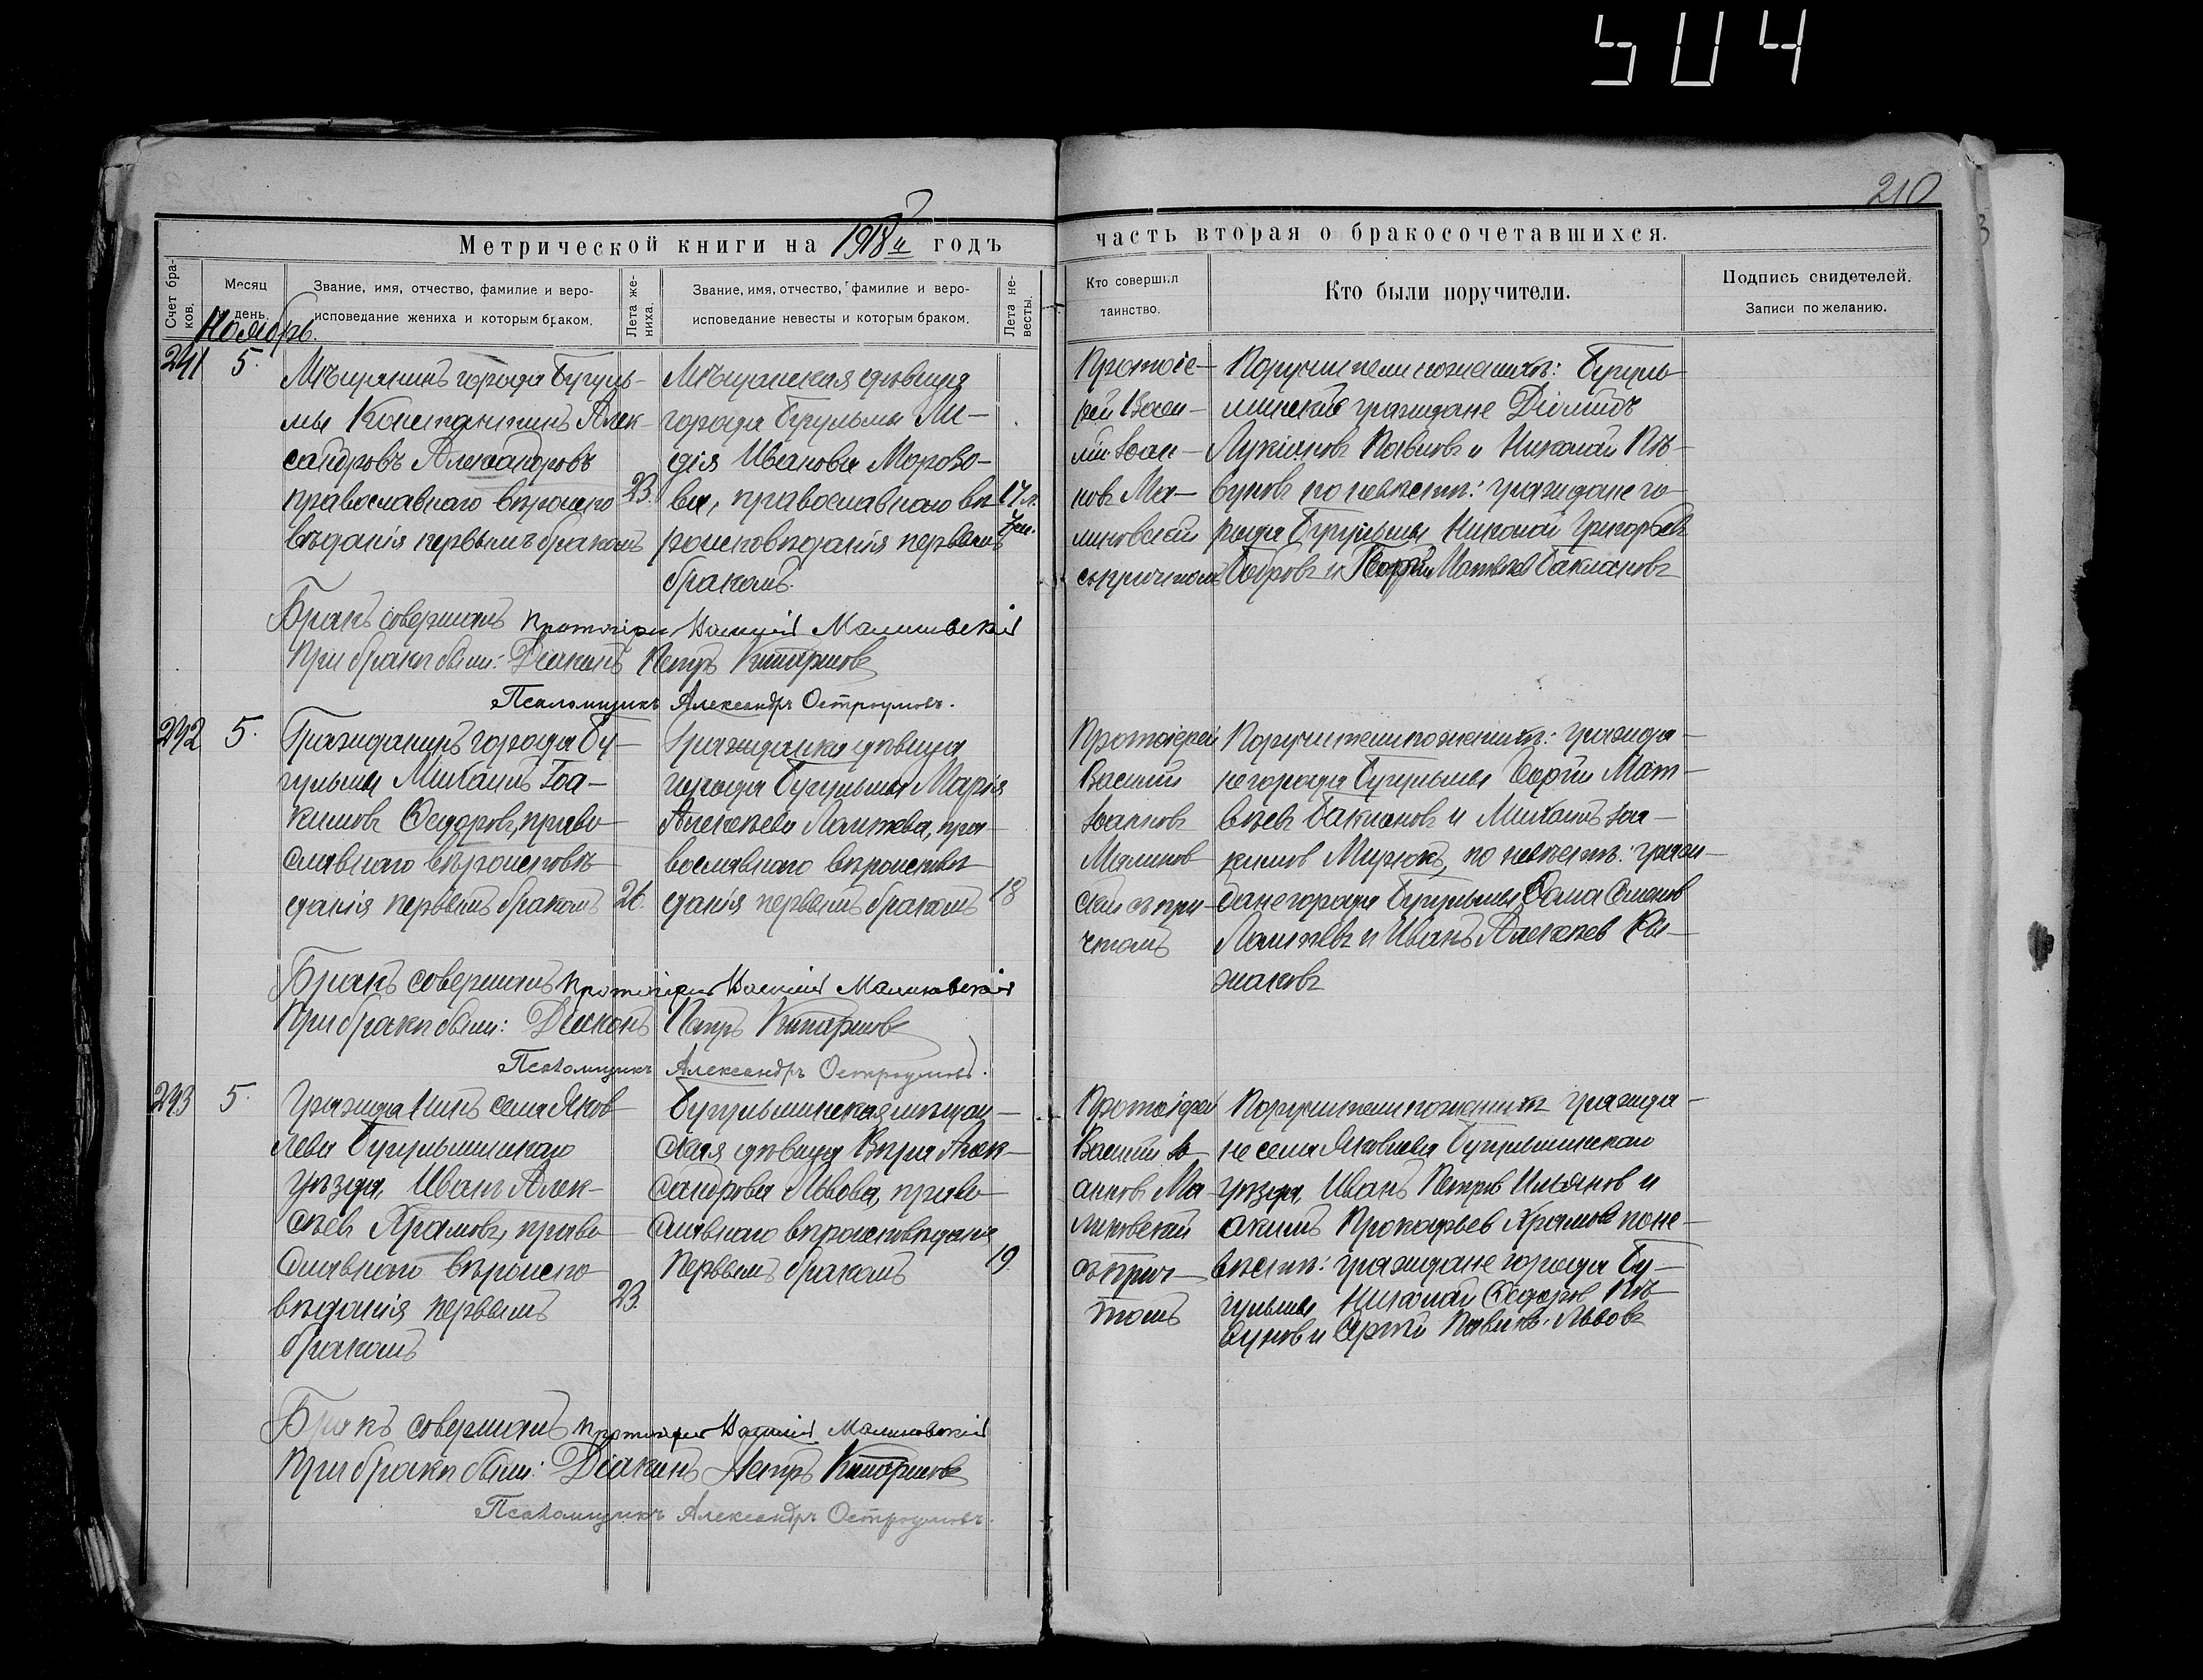 504
210
Метрической книги на 1918й годъ
часть вторая о бракосочетавшихся.
Счет бра-
ков.
Месяц
день.
Ноябрь.
Звание, имя, отчество, фамилие и веро-
исповедание жениха и которым браком.
Лета же-
ниха.
Звание, имя, отчество, фамилие и веро-
исповедание невесты и которым браком.
Лета не-
весты.
Кто совершил
таинство.
Кто были поручители.
Подпись свидетелей.
Записи по желанию.
241
5.
Мѣщанинъ города Бугуль-
мы Константинъ Алек-
сандровъ Александровъ
православнаго вѣроиспо
вѣданія первымъ бракомъ
23.
Мѣщанская дѣвица
города Бугульмы Ли-
дія Иванова Морозо-
ва, православнаго вѣ
роисповѣданія первымъ
бракомъ.
17 л.
7 м.
Протоіе-
рей Васи-
лій Іоан-
новъ Ма-
линовскій
съ причтомъ
Поручители по женихѣ: Бугуль-
минскіе граждане Діомидъ
Лукіановъ Павловъ и Николай Пѣ-
вуновъ по невѣстѣ: граждане го-
рода Бугульмы Николай Григорьевъ
Бобровъ и Сергѣй Матвѣевъ Баклановъ
Бракъ совершалъ Протоіерей Василій Малиновскій
При бракѣ были: Діаконъ Петръ Кипарисовъ
Псаломщикъ Александръ Остроумовъ.
242
5.
Гражданинъ города Бу-
гульмы Михаилъ Іоа-
кимовъ Ѳедоровъ, право
славнаго вѣроисповѣ
данія первымъ бракомъ
26.
Гражданка дѣвица
города Бугульмы Марія
Алексѣева Лаптева, пра-
вославнаго вѣроисповѣ
данія первымъ бракомъ
18
Протоіерей
Василій
Іоанновъ
Малинов
скій съ при-
чтомъ
Поручители по женихѣ: гражда-
не города Бугульмы Сергѣй Мат-
вѣевъ Баклановъ и Михаилъ Іоа-
кимовъ по невѣстѣ: граж-
дане города Бугульмы Ѳома Семеновъ
Лаптевъ и Иванъ Алексѣевъ
Бракъ совершалъ Протоіерей Василій Малиновскій
При бракѣ были: Діаконъ Петръ Кипарисовъ
Псаломщикъ Александръ Остроумовъ.
243
5.
Гражданинъ села Яков
лева Бугульминскаго
уѣзда, Иванъ Алек-
сѣевъ Храмовъ, право
славнаго вѣроиспо
вѣданія первымъ
бракомъ
23.
Бугульминская мѣщан-
ская дѣвица Вѣра Алек-
сандрова Львова, право-
славнаго вѣроисповѣданія
первымъ бракомъ
19
Протоіерей
Василій Іо
анновъ Ма
линовскій
съ прич-
томъ
Поручители по женихѣ гражда-
не села Яковлева Бугульминскаго
уѣзда, Иванъ Петровъ Ильяновъ и
Акимъ Прокофьевъ Храмовъ по не-
вѣстѣ: граждане города Бу-
гульмы Николай Ѳедоровъ Пѣ-
вуновъ и Сергѣй Павловъ Львовъ
Бракъ совершалъ Протоіерей Василій Малиновскій
При бракѣ были: Діаконъ Петръ Кипарисовъ
Псаломщикъ Александръ Остроумовъ.